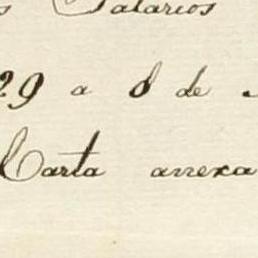 s Salarios
29 a 8 de
Carta annexa